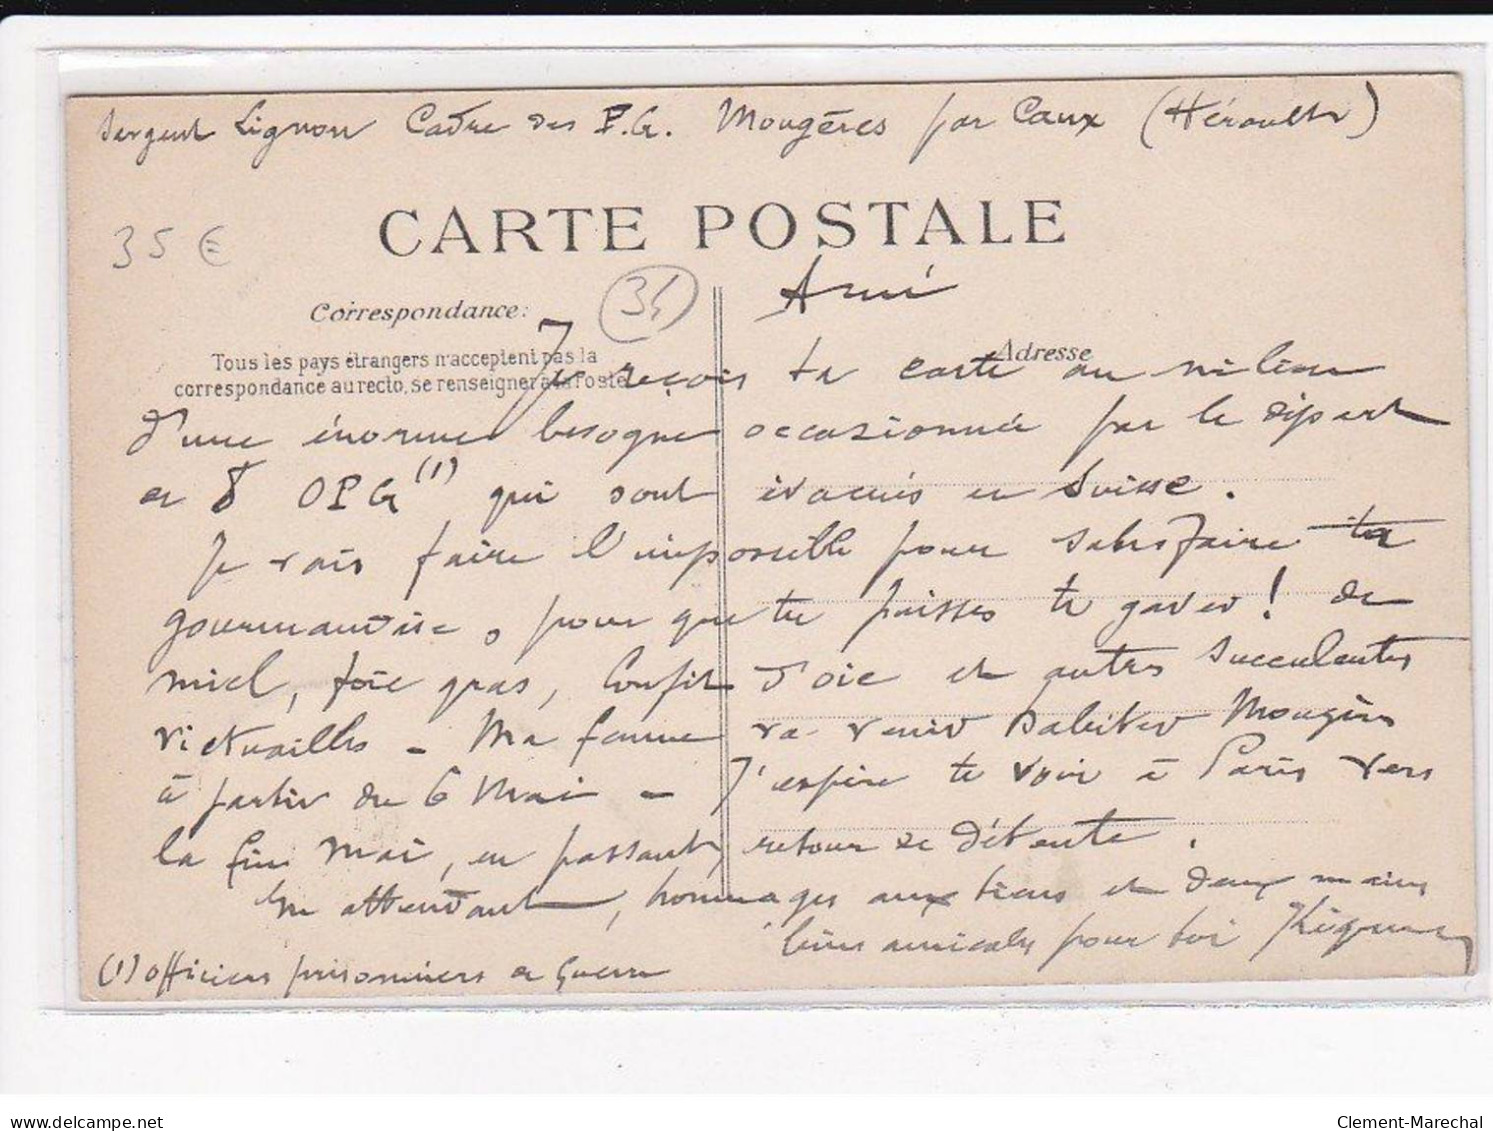 Sergent Lignon Cadre des P.G. Mougères par Caux (Hérault)
CARTE POSTALE
35 €
34
Ami
Correspondance:
Adresse
Tous les pays étrangers n'acceptent pas la
correspondance au recto, se renseigner à la Poste
Je reçois ta carte au milieu
d'une énorme besogne occasionnée par le départ
de 8 OPG (1) qui sont évacués en Suisse.
Je vais faire l'impossible pour satisfaire ta
gourmandise, pour que tu puisses te gaver ! de
miel, foie gras, confit d'oie et autres succulentes
victuailles - Ma femme va venir habiter Mougères
à partir du 6 Mai - J'espère te voir à Paris vers
la fin Mai, en passant, retour de détente.
En attendant, hommages aux tiens et deux mains
bien amicales pour toi
(1) officiers prisonniers de Guerre
delcampe.net
Clement-Marechal